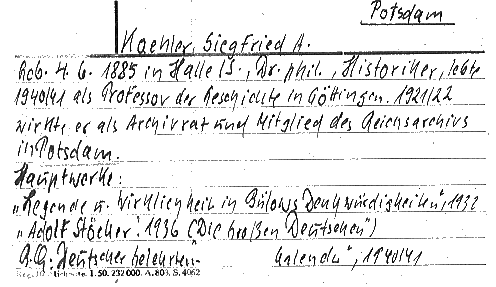 Potsdam
Kaehler, Siegfried A.
Geb. 4. 6. 1885 in Halle/S., Dr. phil., Historiker, lebte
1940/41 als Professor der Geschichte in Göttingen. 1921/22
wirkte er als Archivrat und Mitglied des Reichsarchivs
in Potsdam.
Hauptwerke:
„Legende u. Wirklichkeit in Bülows Denkwürdigkeiten", 1932
„Adolf Stöcker". 1936 (Die Großen Deutschen")
Deutscher Gelehrten-Kalender", 1940/41
1. 50. 232 000. A. 803. S. 4062